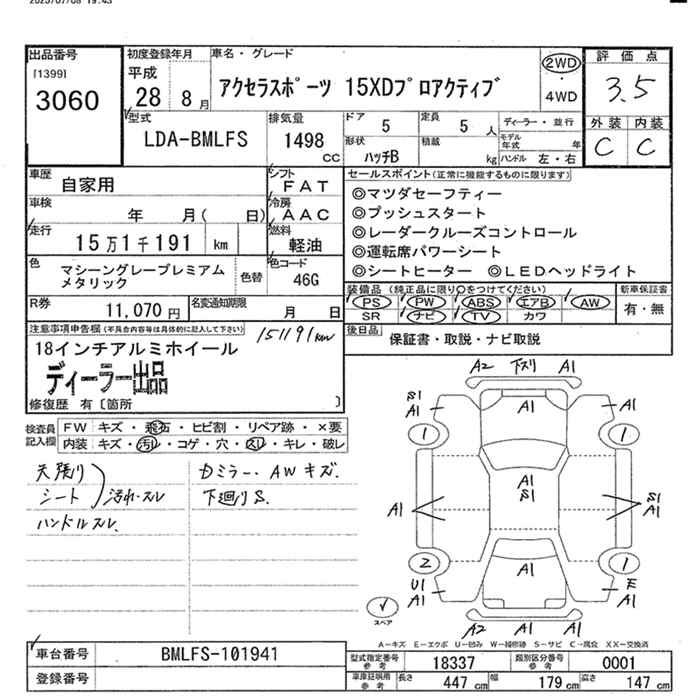 2025/07/08 19:43
出品番号
[1399]
3060
初度登録年月
平成
28 8 月
車名・グレード
アクセラスポーツ 15XDプロアクティブ
2WD
・
4WD
評価点
3.5
外装 内装
C C
型式
LDA-BMLFS
排気量
1498
CC
ドア
5
定員
5 人
形状
ハッチB
積載
kg
ディーラー・並行
モデル年式 年
ハンドル 左・右
車歴
自家用
シフト
FAT
車検
年 月( 日)
冷房
AAC
走行
15万1千191 km
燃料
軽油
色
マシーングレープレミアム
メタリック
色替
色コード
46G
R券
11,070 円
名変通知期限
月 日
セールスポイント(正常に機能するものに限ります)
◎マツダセーフティー
◎プッシュスタート
◎レーダークルーズコントロール
◎運転席パワーシート
◎シートヒーター ◎LEDヘッドライト
装備品(純正品に限り○をつけてください)
PS PW ABS エアB AW
SR ナビ TV カワ
新車保証書
有・無
後日品
保証書・取説・ナビ取説
注意事項申告欄(不具合内容等は具体的に記入して下さい)
151191km
18インチアルミホイール
ディーラー出品
修復歴 有〔箇所 〕
検査員
記入欄
FW キズ・飛石・ヒビ割・リペア跡・×要
内装 キズ・汚レ・コゲ・穴・スレ・キレ・破レ
天張り
シート
汚れ・スレ
ハンドルスレ.
カミラー、AWキズ.
下廻りS.
A2 下スリ A1
S1
A1
A1
A1
1
1
A1
S1
A1
S1
A1
2
1
A1
U1
A1
E
A1
A2 A1 A1
スペア
A-キズ E-エクボ U-凹み W-補修跡 S-サビ C-腐食 XX-交換済
車台番号
BMLFS-101941
登録番号
型式指定番号
参考
18337
類別区分番号
参考
0001
車庫証明用
参考
長さ 447 cm
幅 179 cm
高さ 147 cm